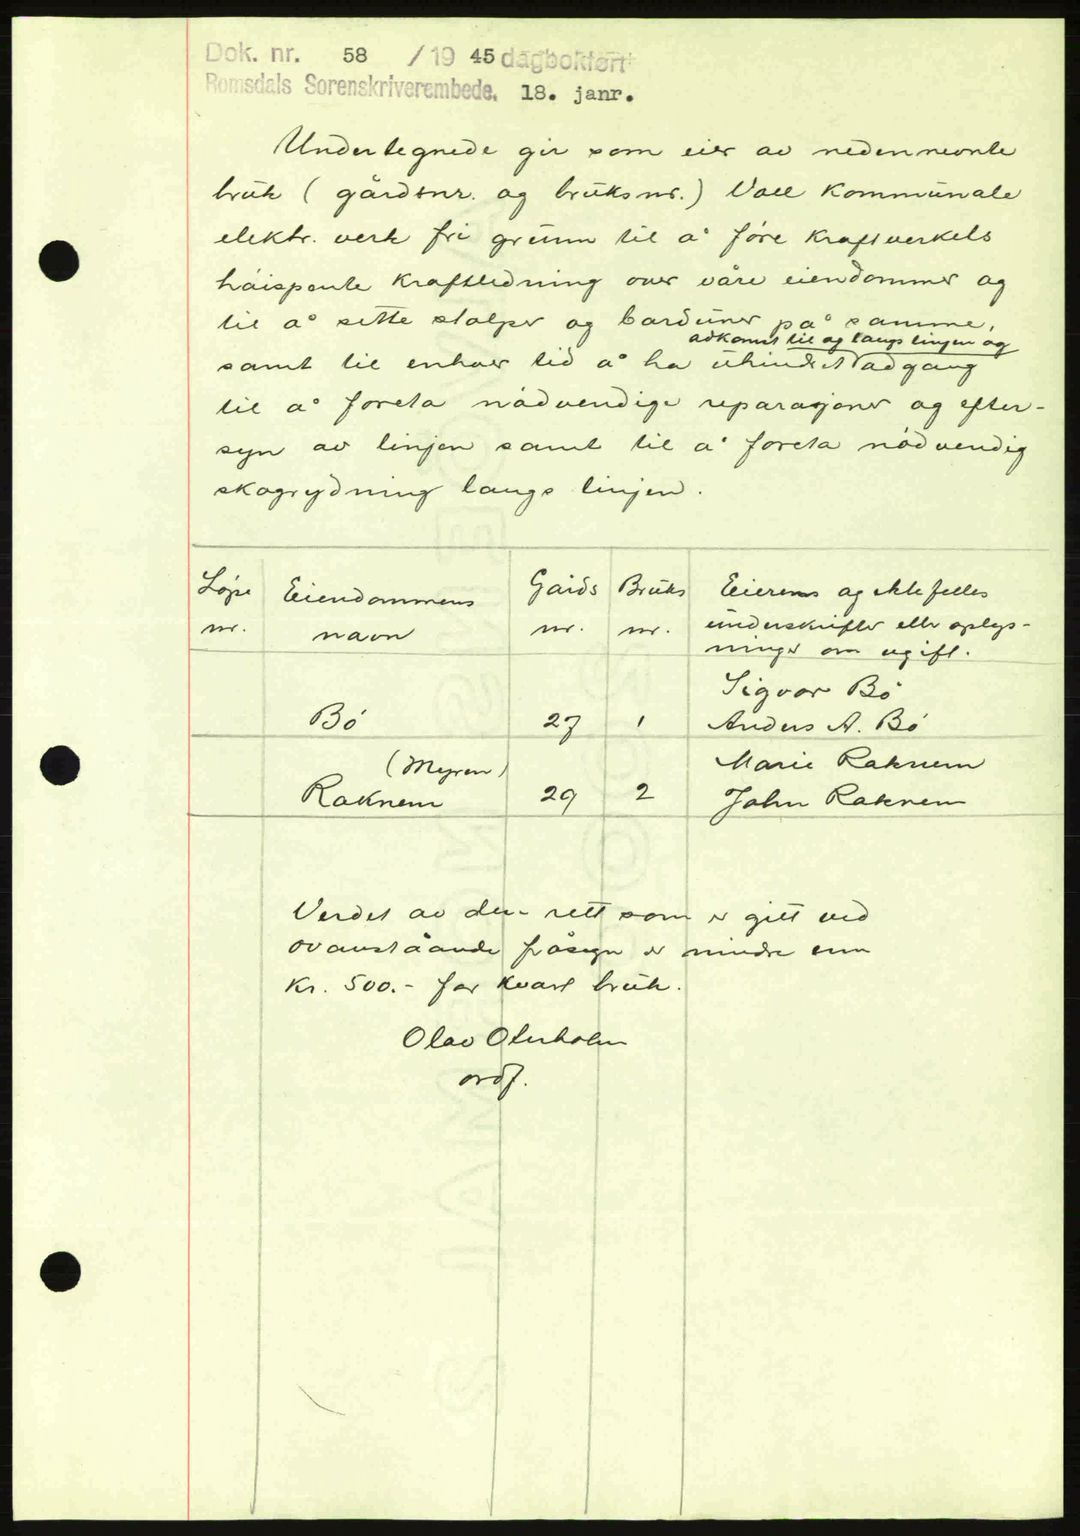 Dok. nr. 58 / 19 45 dagbokført
Romsdals Sorenskriverembede. 18. janr.
Undertegnede gir som eier av nedennevnte
bruk ( gårdsnr. og bruksnr.) Voll kommunale
elektr. verk fri grunn til å føre kraftverkets
høispente kraftledning over våre eiendommer og
til å sette stolper og barduner på samme,
adkomst til og langs linjen og
samt til enhver tid å ha uhindret adgang
til å foreta nødvendige reparasjoner og efter-
syn av linjen samt til å foreta nødvendig
skogrydning langs linjen.
Løpe nr. Eiendommens navn Gards nr. Bruks nr. Eierens og ektefelles
underskrifter eller oplys-
ninger om ugift.
Sigvor Bø
Bø 27 1 Anders A. Bø
(Myren) Marie Raknem
Raknem 29 2 John Raknem
Verdet av den rett som er gitt ved
ovanståande påsegn er mindre enn
Kr. 500.- for kvart bruk.
Olav Oterholm
ordf.